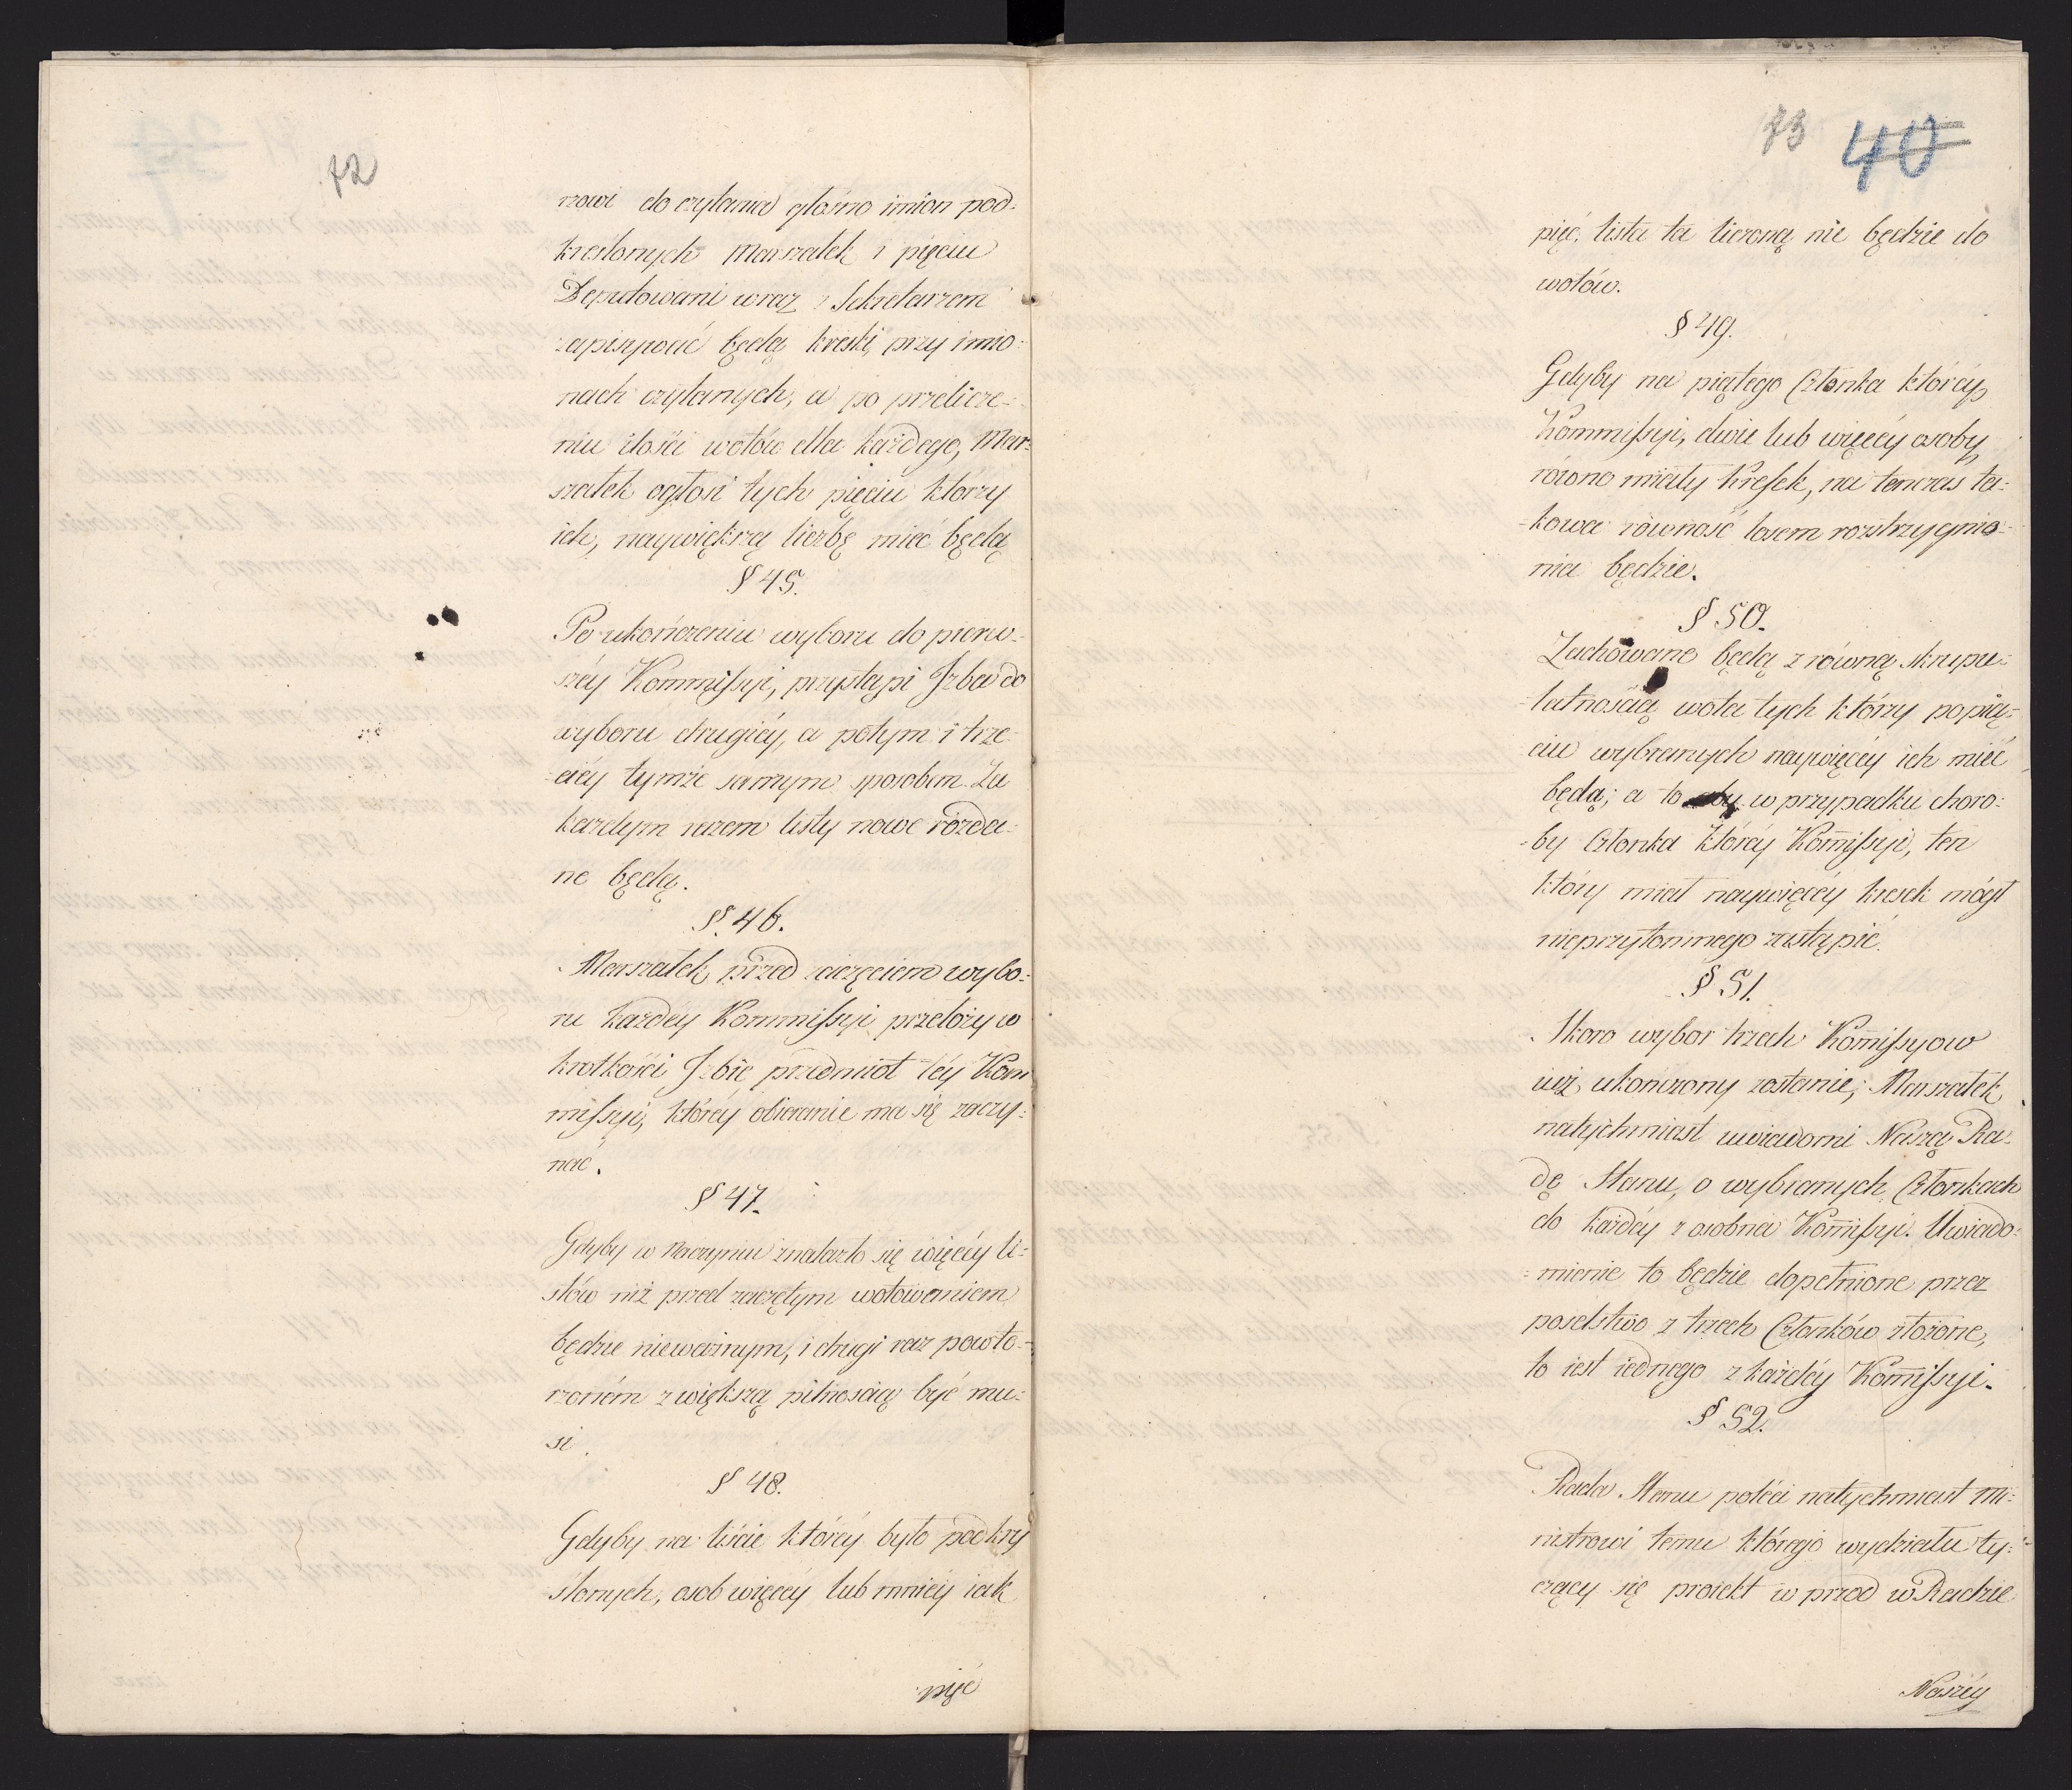 72
rzowi do czytania głośno imion pod-
kreślonych Marszałek i pięciu
Deputowani wraz z Sekretarzem
zapisywać będą kreski przy imio-
nach czytanych, a po przelicze-
niu ilości wotów dla każdego, Mar-
szałek ogłosi tych pięciu którzy
ich, naywiększą liczbę mieć będą
§ 45.
Po ukończeniu wyboru do pierw-
széy Kommissyi, przystąpi Izba do
wyboru drugiéy, a potym i trze-
ciéy tymże samym sposobem. Za
każdym razem listy nowe rozda-
ne będą.
§. 46.
Marszałek przed zaczęciem wybo-
ru każdéy Kommissyi przełoży w
krotkości Izbie przedmiot téy Kom
missyi, któréy obieranie ma się zaczy-
nać.
§ 47.
Gdyby w naczyniu znalazło się więcéy li-
stów niż przed zaczętym wotowaniem
będzie nieważnym, i drugi raz powto-
rzoném z większą pilnością być mu-
si.
§ 48.
Gdyby na liście któréy było podkry
ślonych, osob więcéy lub mniéy iak
pięć
73 40
pięć, lista ta liczoną nie będzie do
wotów.
§ 49.
Gdyby na piątego Członka któréy
Kommissyi, dwie lub więcéy osoby
równo miały kresek, na tenczas ta-
kowa równość losem rozstrzygnio-
na będzie.
§ 50.
Zachowane będą z równą skrupu-
latnością wota tych którzy po pię-
ciu wybranych naywięcéy ich mieć
będą; a to aby w przypadku choro-
by Członka któréy Kom̄issyi, ten
który miał naywięcéy kresek mógł
nieprzytomnego zastąpić.
§ 51.
Skoro wybor trzech Kom̄issyow
iuż ukończony zostanie, Marszałek
natychmiast uwiadomi Naszą Ra-
dę Stanu, o wybranych Członkach
do każdéy z osobna Kom̄issyi. Uwiado-
mienie to będzie dopełnione przez
poselstwo z trzech Członków złożone,
to iest iednego z każdéy Kom̄issyi.
§ 52.
Rada Stanu poleci natychmiast Mi-
nistrowi temu którego wydziału ty-
czący się proiekt w przod w Radzie
Naszéy